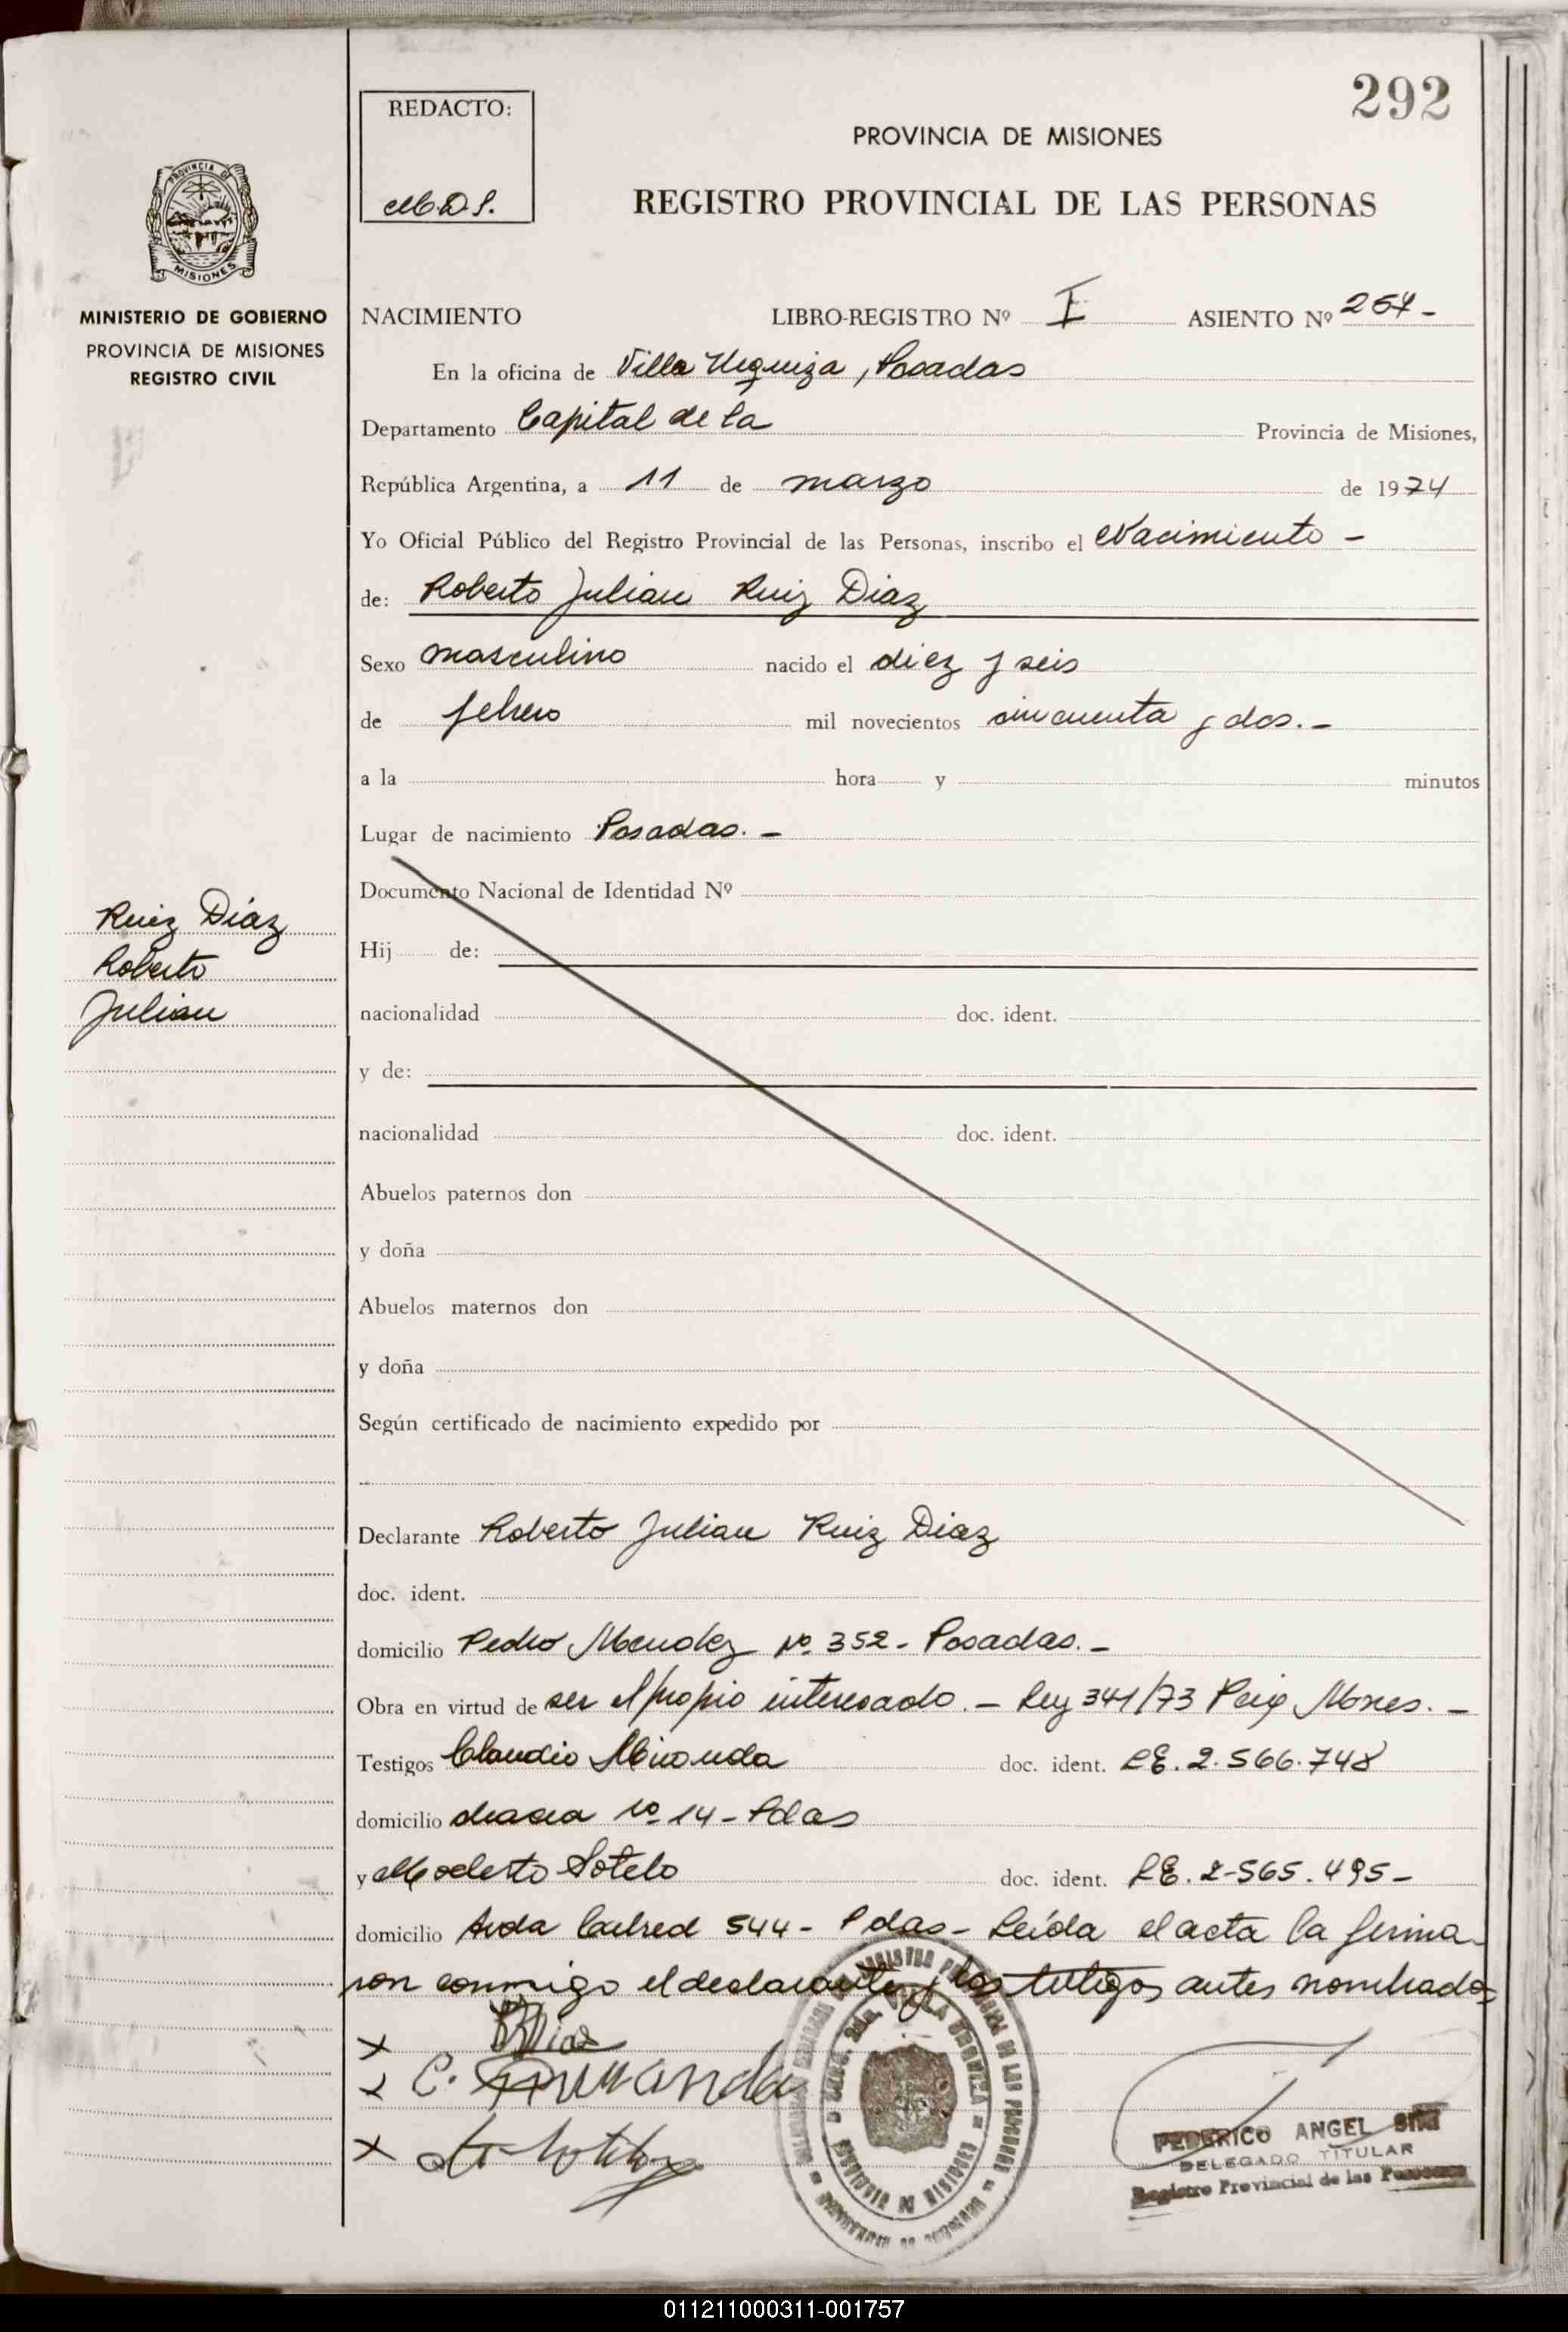 292
REDACTO:
M.D.S.
PROVINCIA DE MISIONES
REGISTRO PROVINCIAL DE LAS PERSONAS
PROVINCIA DE
MISIONES
MINISTERIO DE GOBIERNO
PROVINCIA DE MISIONES
REGISTRO CIVIL
NACIMIENTO LIBRO-REGISTRO Nº I ASIENTO Nº 264-
En la oficina de Villa Urquiza, Posadas
Departamento Capital de la Provincia de Misiones,
República Argentina, a 11 de marzo de 1974
Yo Oficial Público del Registro Provincial de las Personas, inscribo el Nacimiento -
de: Roberto Julian Ruiz Diaz
Sexo masculino nacido el diez y seis
de febrero mil novecientos cincuenta y dos.-
a la hora y minutos
Lugar de nacimiento Posadas.-
Documento Nacional de Identidad Nº
Ruiz Díaz
Roberto
Julian
Hij de:
nacionalidad doc. ident.
y de:
nacionalidad doc. ident.
Abuelos paternos don
y doña
Abuelos maternos don
y doña
Según certificado de nacimiento expedido por
Declarante Roberto Julian Ruiz Diaz
doc. ident.
domicilio Pedro Mendez Nº 352 - Posadas.-
Obra en virtud de ser el propio interesado.- Ley 341/73
Testigos Claudio Miranda doc. ident. LE. 2.566.748
domicilio chacra Nº 14 - Pdas
y Modesto Sotelo doc. ident. LE. 2-565.495-
domicilio Avda 544 - Pdas - Leída el acta la firma-
ron conmigo el declarante y los testigos antes nombrados
x Diaz
x C. Miranda
x
FEDERICO ANGEL
DELEGADO TITULAR
Registro Provincial de las Personas
011211000311-001757